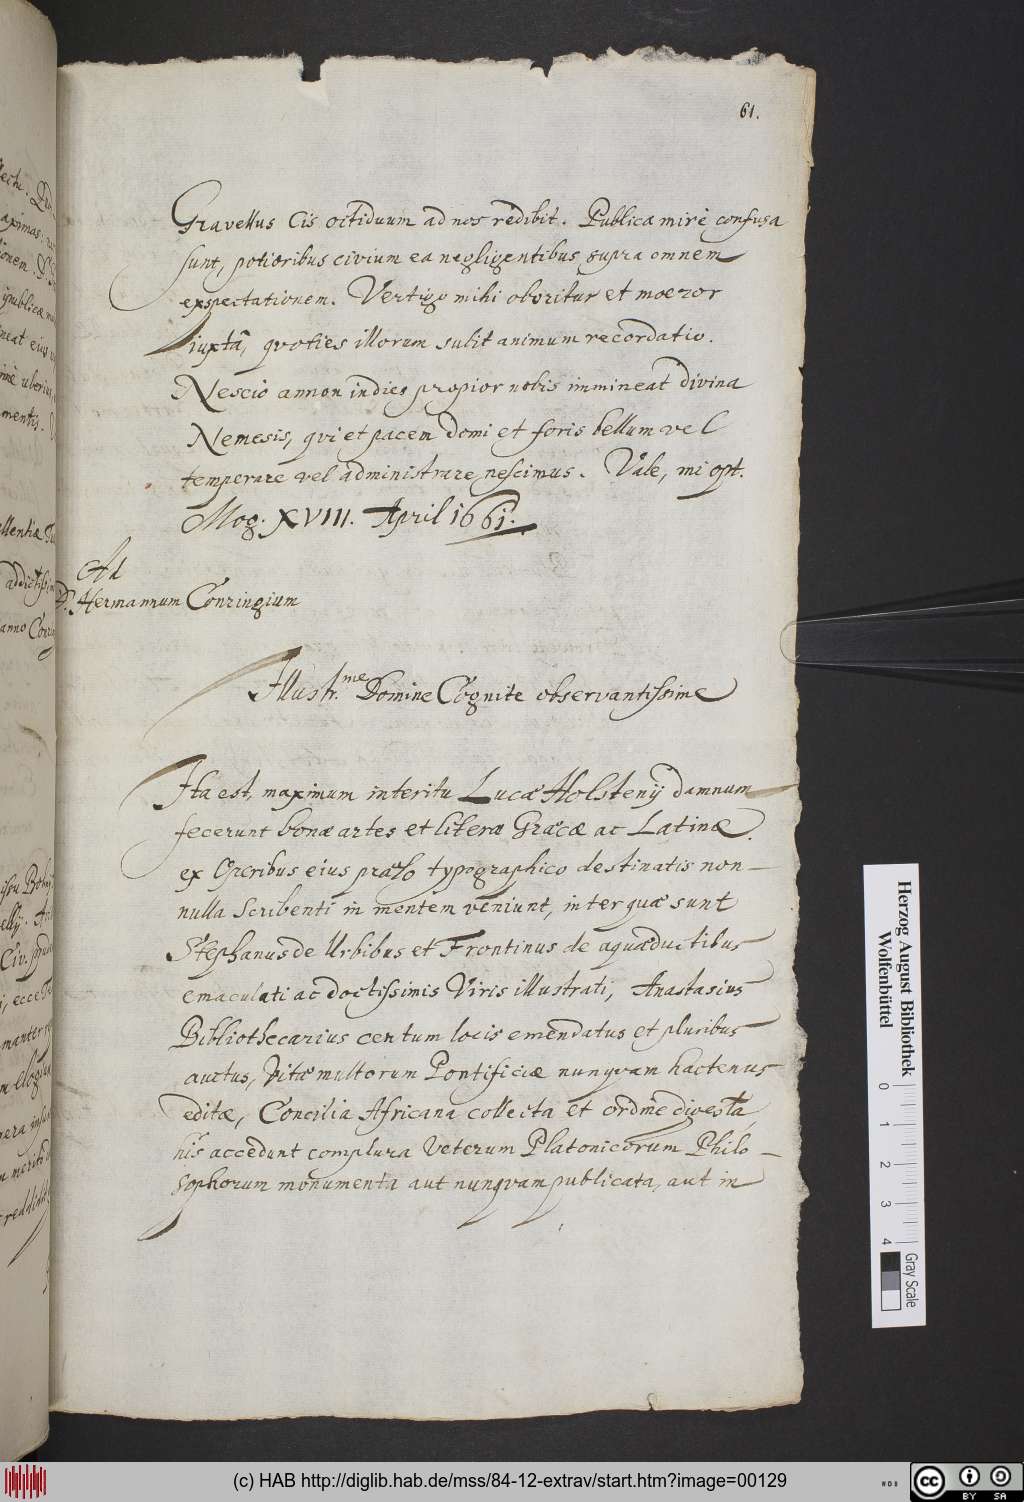 61.
Gravellus cis octiduum ad nos redibit. Publica mirè confusa
sunt, potioribus civium ea negligentibus supra omnem
exspectationem. Vertigo mihi oboritur et moeror
iuxtà, qvoties illorum subit animum recordatio.
Nescio annon indies propior nobis immineat divina
Nemesis, qvi et pacem domi et foris bellum vel
temperare vel administrare nescimus. Vale, mi opt.
Mog. XVIII. April 1661.
Ad
D. Hermannum Conringium
Illustr.me Domine Cognite observantissime
Ita est, maximum interitu Lucæ Holstenij damnum
fecerunt bonæ artes et literæ Græcæ ac Latinæ.
ex Operibus eius prælo typographico destinatis non-
nulla Scribenti in mentem veniunt, inter quæ sunt
Stephanus de Urbibus et Frontinus de aquæductibus
emaculati ac doctissimis Viris illustrati, Anastasius
Bibliothecarius centum locis emendatus et pluribus
auctus, Vitæ multorum Pontificiæ nunqvam hactenus
editæ, Concilia Africana collecta et ordine digesta
his accedunt complura Veterum Platonicorum Philo-
sophorum monumenta aut nunqvam publicata, aut in
Herzog August Bibliothek
Wolfenbüttel
0 1 2 3 4
Gray Scale
(c) HAB http://diglib.hab.de/mss/84-12-extrav/start.htm?image=00129
cc BY SA